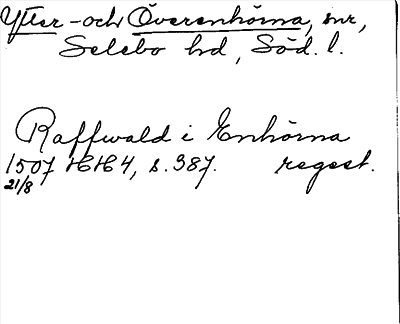 Ytter- och Överenhörna, snr,
Selebo hd, Söd. l.
Raffwald i Enhörna
1507 HH 4, s. 387. regest.
21/8